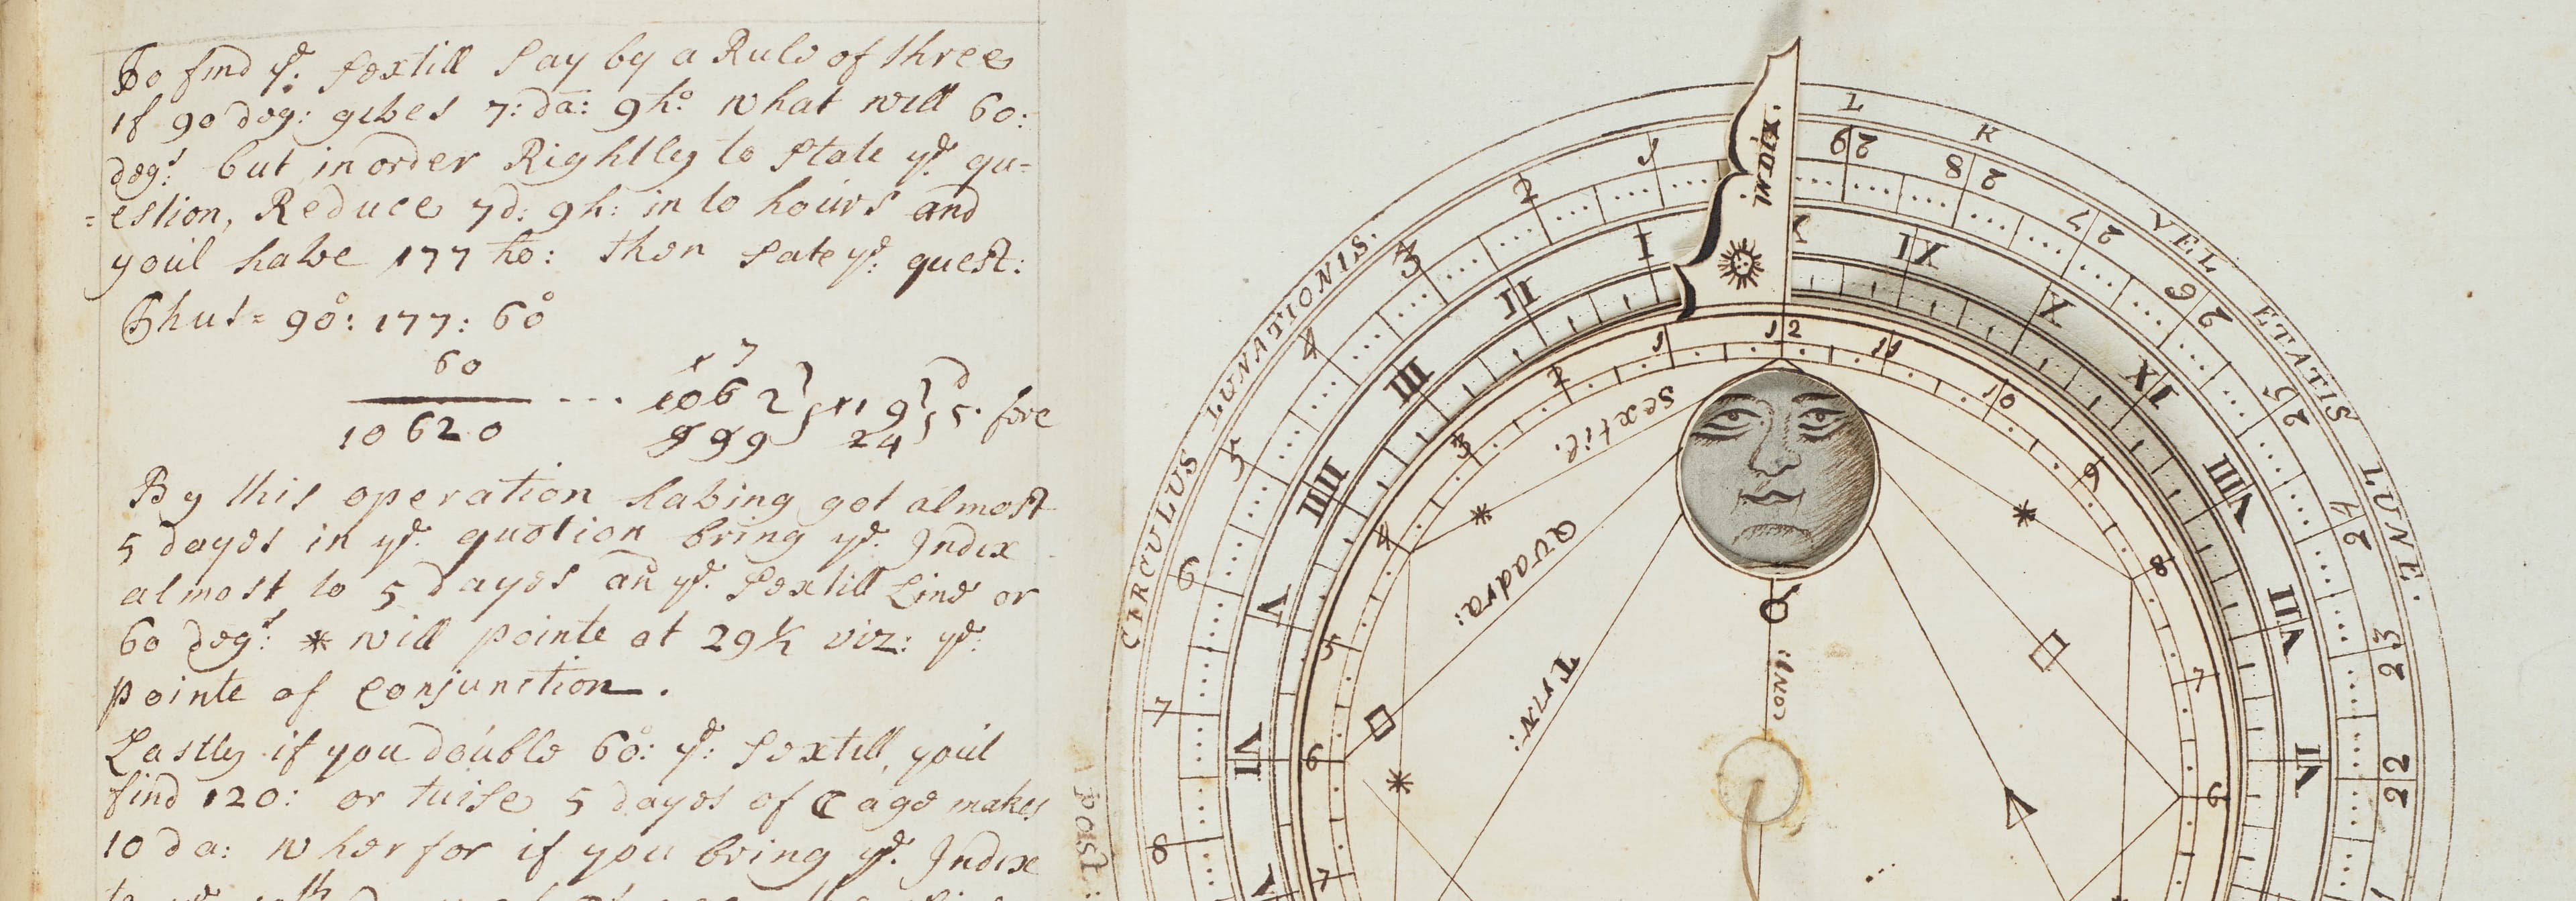 To find ye: sextill say by a Rule of three
if 90 deg: gives 7: da: 9 ho: what will 60:
degs: but in order Rightley to state ye: qu=
=estion, Reduce 7d: 9h: in to hours and
youil have 177 ho: then sate ye: quest:
Thus= 90: 177: 60
60
10620
17
1062
999
119
24
5. fere
By this operation having got almost
5 dayes in ye: quotion bring ye: Index
almost to 5 dayes an ye: sextill Line or
60 degs: * will pointe at 29½ viz: ye:
pointe of conjunction.
Lastley if you double 60: ye: sextill, youil
find 120: or twise 5 dayes of ☾ age makes
10 da: wherfor if you bring ye: Index
past:
CIRCULUS LUNATIONIS. L K VEL ETATIS LUNE.
1 2 3 4 5 6 7 8
29 28 27 26 25 24 23 22
INDIX.
I II III IIII V VI
IX X XI VIII VII VI
12 1 2 3 4 5 6 7
11 10 9 8 7 6
Sextil.
Quadra:
Trin:
conu: